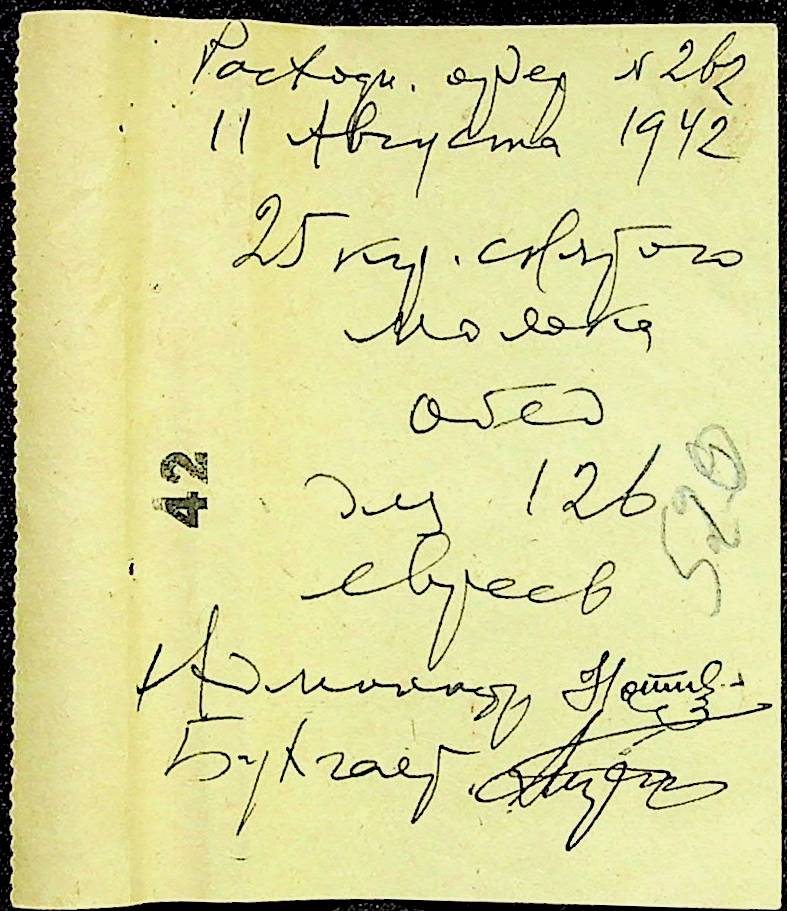 Расходн. ордер № 262
11 Августа 1942
25 кгр. снятого
молока
обед
для 126
евреев
42
520
Администр
Бухгалт.